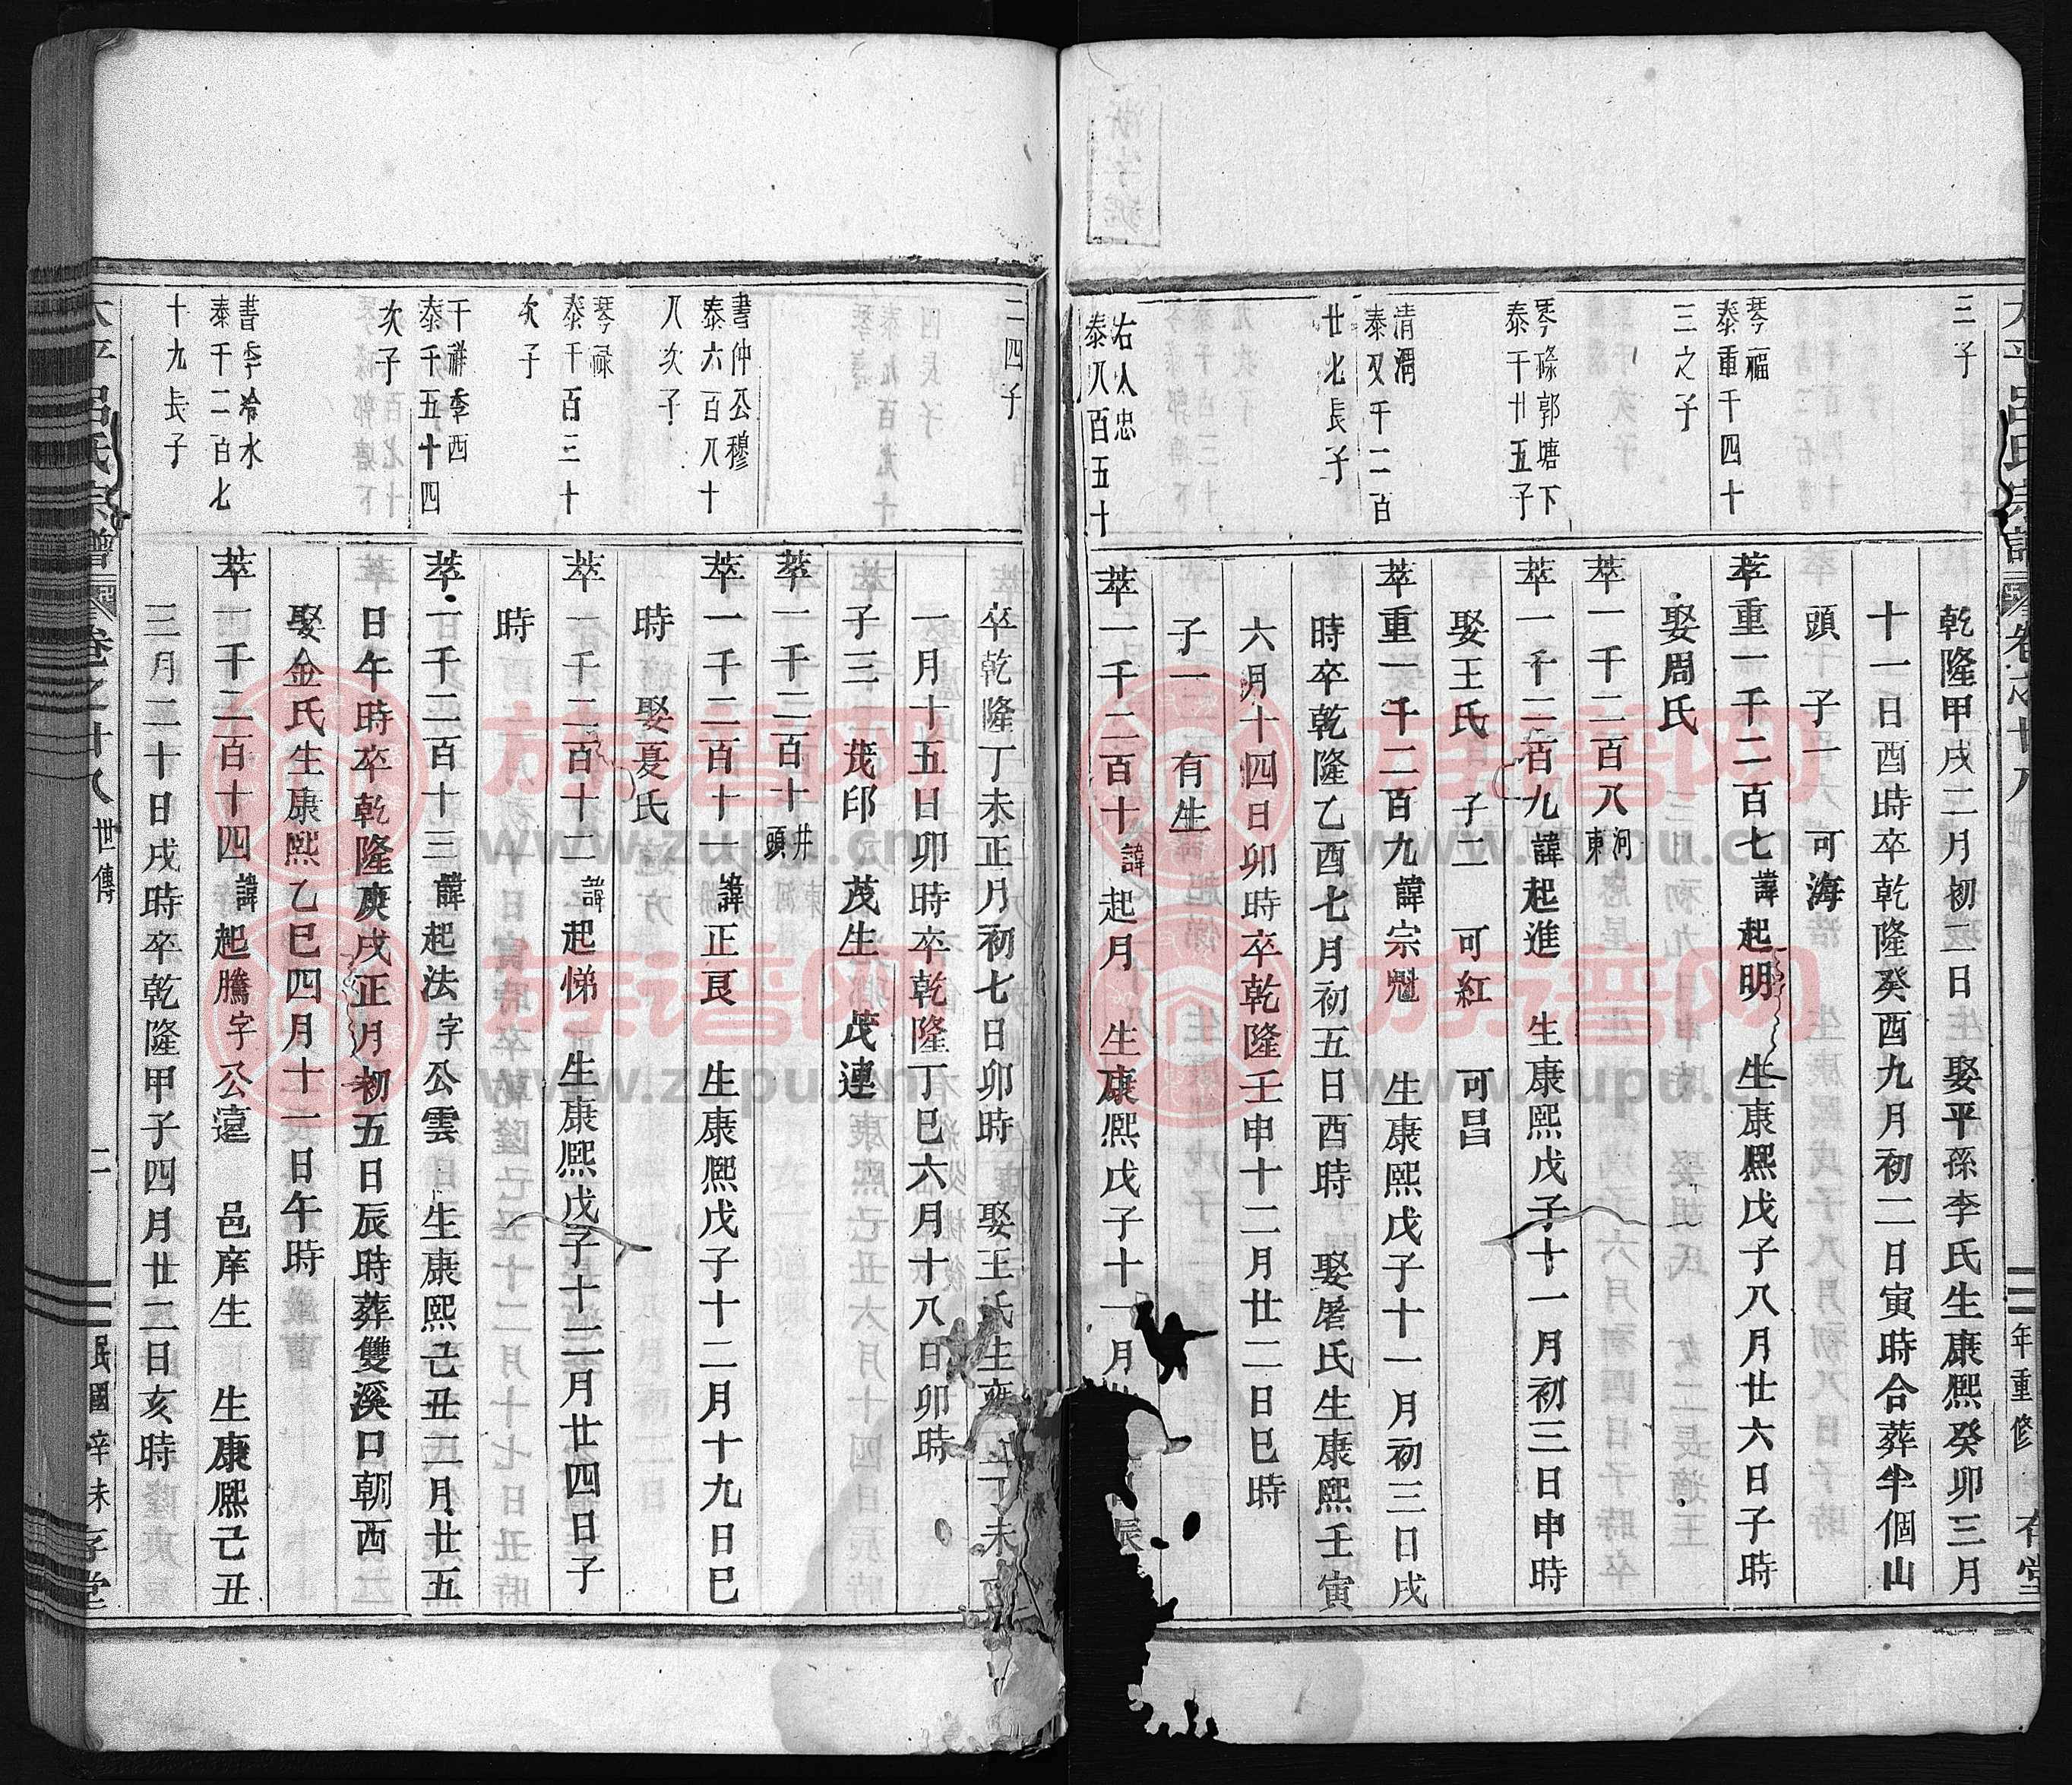 三子
乾隆甲戌二月初二日生 娶平孫李氏生康熙癸卯三月
十一日酉時卒乾隆癸酉九月初二日寅時合葬半個山
頭 子一 可海
琴福
泰重千四十
三之子
萃重一千二百七諱起明 生康熙戊子八月廿六日子時
娶周氏
萃一千二百八河東
琴祿郭塘下
泰千廿五子
萃一千二百九諱起進 生康熙戊子十一月初三日申時
娶王氏 子二 可紅 可昌
清渭
泰又千二百
廿七長子
萃重一千二百九諱宗魁 生康熙戊子十一月初三日戌
時卒乾隆乙酉七月初五日酉時 娶屠氏生康熙壬寅
六月十四日卯時卒乾隆壬申十二月廿二日巳時
子一 有生
右人忠
泰八百五十
萃一千二百十諱起月 生康熙戊子十一月
二四子
卒乾隆丁未正月初七日卯時 娶王氏生雍正丁未
一月十五日卯時卒乾隆丁巳六月十八日卯時
子三 茂印 茂生 茂連
萃一千二百十井頭
書仲公穆
泰六百八十
八次子
萃一千二百十一諱正艮 生康熙戊子十二月十九日巳
時 娶夏氏
琴祿
泰千百三十
次子
萃一千二百十二諱起悌 生康熙戊子十二月廿四日子
時
千祥季西
泰千五十四
次子
萃一千二百十三諱起法字公雲 生康熙己丑二月廿五
日午時卒乾隆庚戌正月初五日辰時葬雙溪口朝西
娶金氏生康熙乙巳四月十一日午時
書季冷水
泰千二百七
十九長子
萃一千二百十四諱起騰字公遠 邑庠生 生康熙己丑
三月二十日戌時卒乾隆甲子四月廿二日亥時
太平呂氏宗譜 卷之廿八 世傳 二 民國辛未 存堂
太平呂氏宗譜 卷之廿八 年重修 存堂
族谱网
www.zupu.cn
族谱网
www.zupu.cn
族谱网
www.zupu.cn
族谱网
www.zupu.cn